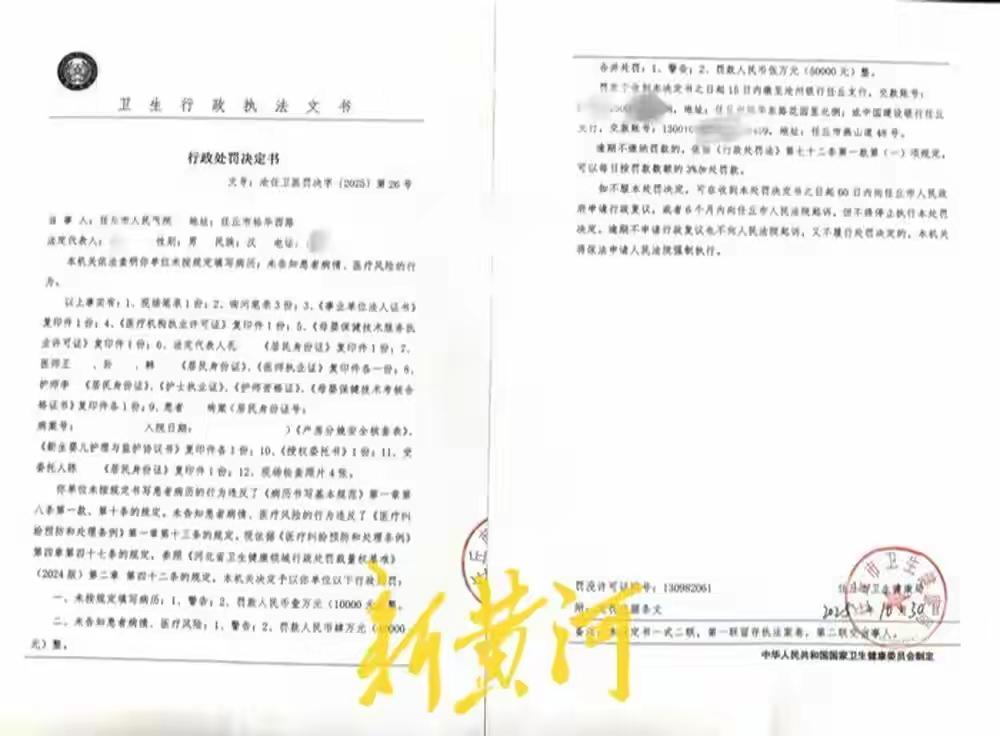 卫生行政执法文书
行政处罚决定书
文号：沧任卫医罚决字〔2025〕第26号
当事人：任丘市人民医院 地址：任丘市裕华西路
法定代表人： 性别：男 民族：汉 电话：
本机关依法查明你单位未按规定填写病历；未告知患者病情、医疗风险的行
为。
以上事实有：1、现场笔录1份；2、询问笔录3份；3、《事业单位法人证书》
复印件1份；4、《医疗机构执业许可证》复印件1份；5、《母婴保健技术服务执
业许可证》复印件1份；6、法定代表人孔 《居民身份证》复印件1份；7、
医师王 、孙 、韩 《居民身份证》、《医师执业证》复印件各一份；8、
护师李 《居民身份证》、《护士执业证》、《护师资格证》、《母婴保健技术考核合
格证书》复印件各1份；9、患者 病案（居民身份证号：
病案号： 入院日期： ）《产房分娩安全核查表》、
《新生婴儿护理与监护协议书》复印件各1份；10、《授权委托书》1份；11、受
委托人陈 《居民身份证》复印件1份；12、现场检查照片4张。
你单位未按规定书写患者病历的行为违反了《病历书写基本规范》第一章第
八条第一款、第十条的规定，未告知患者病情、医疗风险的行为违反了《医疗纠
纷预防和处理条例》第一章第十三条的规定，现依据《医疗纠纷预防和处理条例》
第四章第四十七条的规定，参照《河北省卫生健康领域行政处罚裁量权基准》
（2024版）第二章 第四十二条的规定，本机关决定予以你单位以下行政处罚：
一、未按规定填写病历：1、警告；2、罚款人民币壹万元（10000元）整。
二、未告知患者病情、医疗风险：1、警告；2、罚款人民币肆万元（40000
元）整。
合并处罚：1、警告；2、罚款人民币伍万元（50000元）整。
罚款于收到本决定书之日起15日内缴至沧州银行任丘支行，交款账号：
地址：任丘市 东路花园里北侧；或中国建设银行任丘
支行，交款账号：13001 ，地址：任丘市燕山道48号。
逾期不缴纳罚款的，依据《行政处罚法》第七十二条第一款第（一）项规定，
可以每日按罚款数额的3%加处罚款。
如不服本处罚决定，可在收到本处罚决定书之日起60日内向任丘市人民政
府申请行政复议，或者6个月内向任丘市人民法院起诉，但不得停止执行本处罚
决定，逾期不申请行政复议也不向人民法院起诉，又不履行处罚决定的，本机关
将依法申请人民法院强制执行。
罚没许可证编号：130982061 任丘市卫生健康局
附： 条文 2025年10月30日
备注：本决定书一式二联，第一联留存执法案卷，第二联交当事人。
中华人民共和国国家卫生健康委员会制定
新黄河